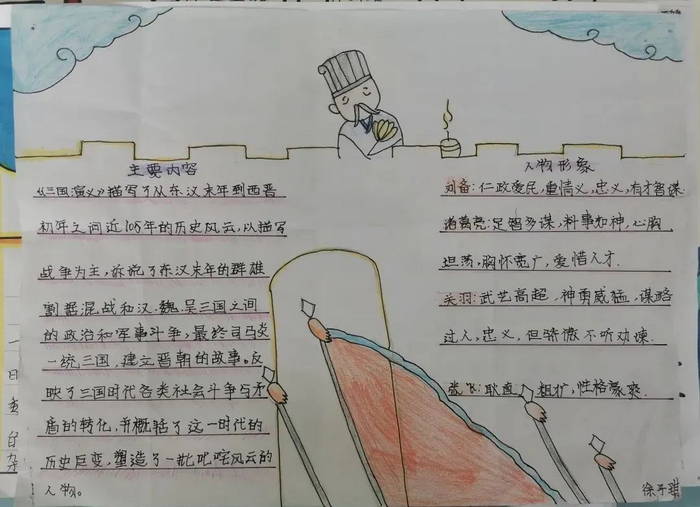 主要内容
《三国演义》描写了从东汉末年到西晋
初年之间近105年的历史风云,以描写
战争为主,诉说了东汉末年的群雄
割据混战和汉、魏、吴三国之间
的政治和军事斗争,最终司马炎
一统三国,建立晋朝的故事。反
映了三国时代各类社会斗争与矛
盾的转化,并概括了这一时代的
历史巨变,塑造了一批叱咤风云的
人物。
人物形象
刘备:仁政爱民,重情义,忠义,有才智谋
诸葛亮:足智多谋,料事如神,心胸
坦荡,胸怀宽广,爱惜人才.
关羽:武艺高超,神勇威猛,谋略
过人,忠义,但骄傲不听劝谏.
张飞:耿直,粗犷,性格豪爽.
徐子琪
一
日